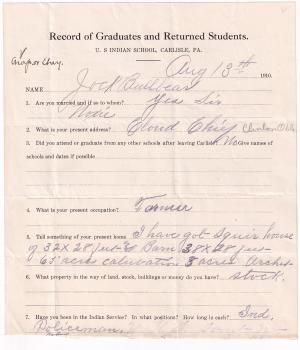 Record of Graduates and Returned Students.
U. S INDIAN SCHOOL, CARLISLE, PA.
Aug 13th 1910.
NAME Jock Bullbear
1. Are you married and if so to whom? Yes Sir
2. What is your present address? Cloud Chief Okla
3. Did you attend or graduate from any other schools after leaving Carlisle? No Give names of schools and dates if possible
4. What is your present occupation? Farmer
5. Tell something of your present home I have got Squir house
of 32 X 28 feet & Barn 38 X 28 feet
65 acres cultivation 3 acres Orchet
6. What property in the way of land, stock, buildings or money do you have? stock.
7. Have you been in the Indian Service? In what positions? How long in each? Ind.
Policeman.